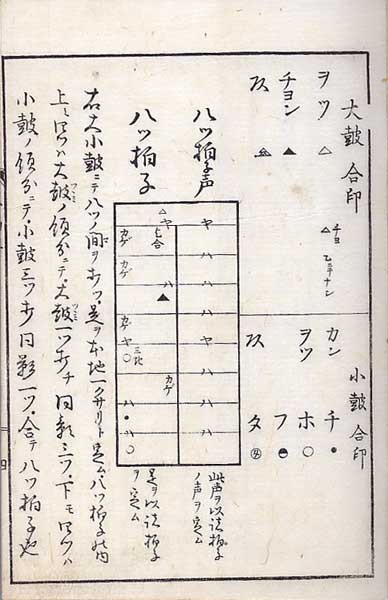 大鼓 合印
ヲツ △
チヨン ▲
△ チヨ 乙ニテナシ
小鼓 合印
カン チ ・
ヲツ ホ ○
フ
タ
八ツ拍子声
ヤ
ハ
ハ
ハ
ヤ
ハ
ハ
ハ
此声ヲ以諸拍子
ノ声ヲ定ム
八ツ拍子
△ ヤ
カゲ
カゲ
ハ ▲
カゲ ヤ ○
カゲ
ハ ・
ハ ○
是ヲ以諸拍子
ヲ定ム
右大小鼓ニテ八ツノ間ヲ打ツ・是ヲ本地一クサリト定ム八ツ拍子ノ内
上ミ四ツハ大鼓ノ領分ニテ大鼓一ツ打チ同影三ツ・下モ四ツハ
小鼓ノ領分ニテ・小鼓三ツ打同影一ツ・合テ八ツ拍子也